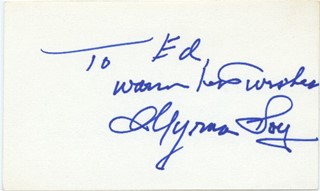 To Ed,
warm best wishes
Myrna Loy